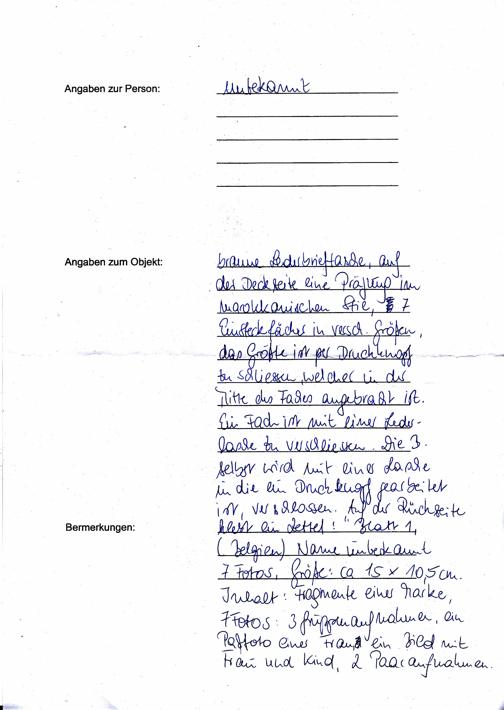 Angaben zur Person: unbekannt
Angaben zum Objekt: braune Lederbrieftasche, auf
der Deckseite eine Prägung im
marokkanischen Stil, 7
Einsteckfächer in versch. Größen,
das Größte ist per Druckknopf
zu schliessen, welcher in der
Mitte des Faches angebracht ist.
Ein Fach ist mit einer Leder-
lasche zu verschliessen. Die B.
selbst wird mit einer Lasche
in die ein Druckknopf gearbeitet
ist, verschlossen. Auf der Rückseite
Bermerkungen: klebt ein Zettel: "Blatt 1,
(Belgien) Name unbekannt
7 Fotos, Größe: ca 15 x 10,5 cm.
Inhalt: Fragmente einer Marke,
7 Fotos: 3 Gruppenaufnahmen, ein
Paßfoto einer Frau, ein Bild mit
Frau und Kind, 2 Paaraufnahmen.